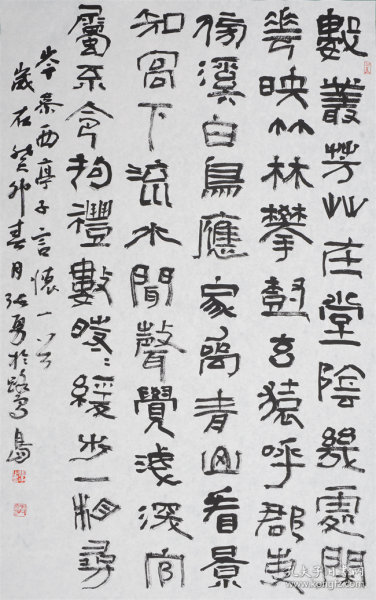 數叢芳艸在堂陰幾處閒
華映竹林攀樹玄猿呼郡吏
傍溪白鳥應家禽青山看景
知高下流水聞聲覺淺深官
屬不令拘禮數時〻緩步一相尋
岑參西亭子言懷一首
歲在癸卯春月张勇於鷺島